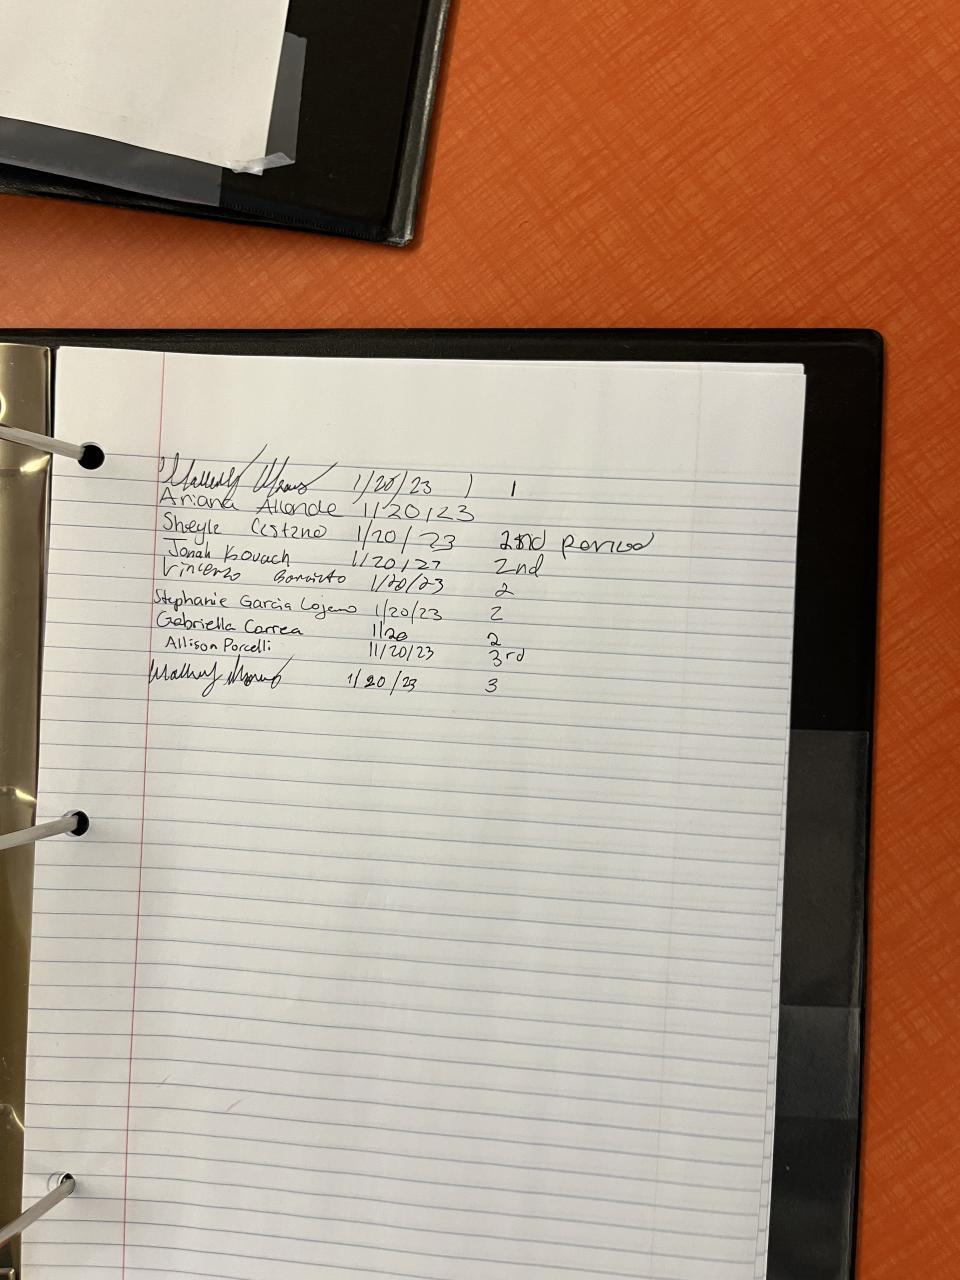 1/20/23 ) 1
Ariana Allende 1/20/23
Sheyla 1/20/23 2nd period
Jonah Kovach 1/20/23 2nd
Vincenzo 1/20/23 2
Stephanie Garcia Lojano 1/20/23 2
Gabriella Correa 1/20 2
Allison Porcelli 11/20/23 3rd
1/20/23 3